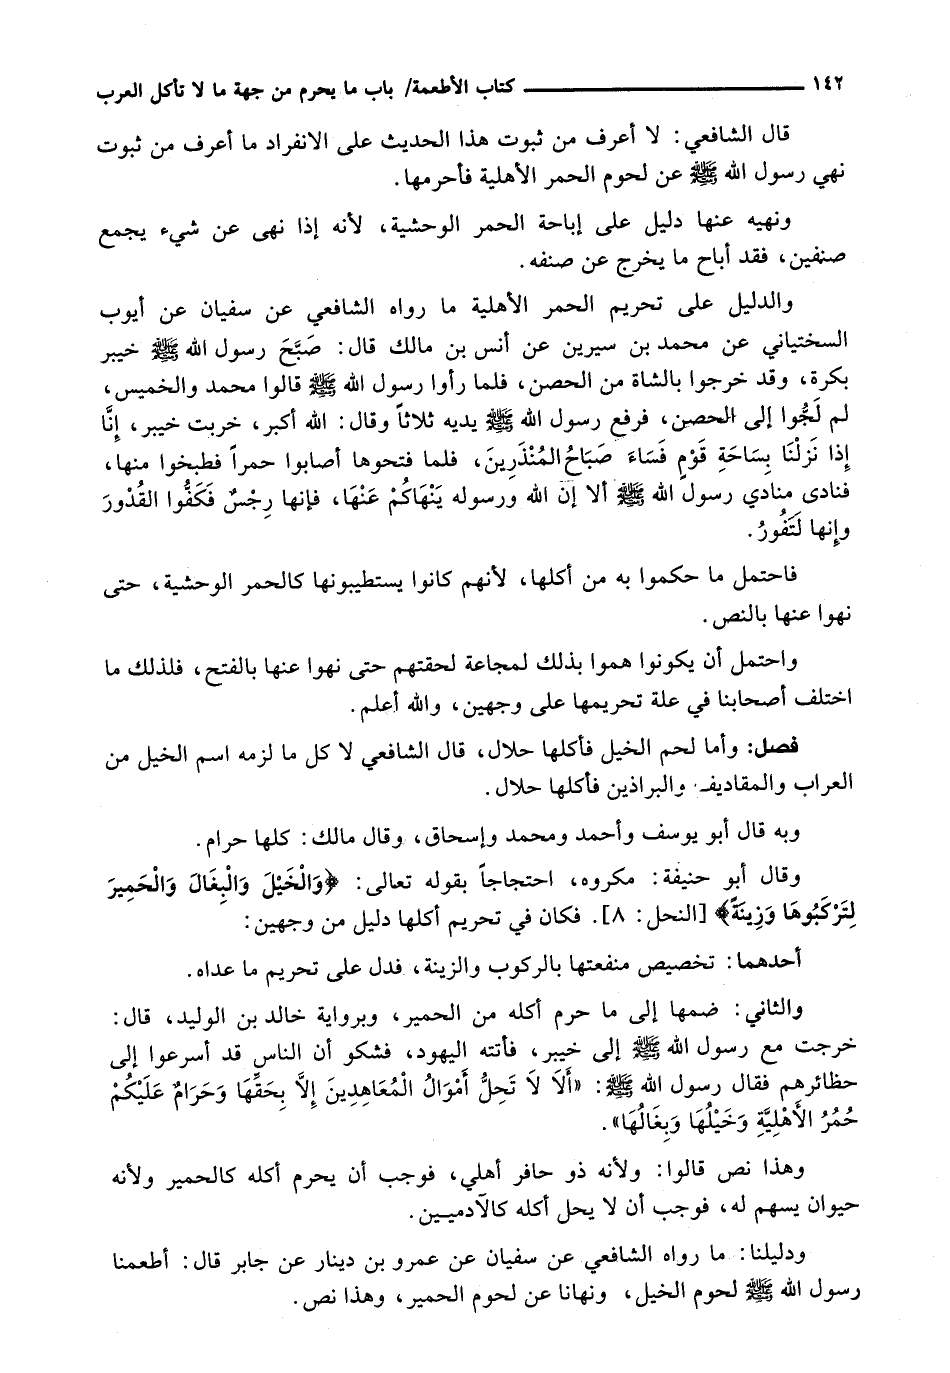 ١٤٢ ــــــــــــــــــــ كتاب الأطعمة/ باب ما يحرم من جهة ما لا تأكل العرب
قال الشافعي: لا أعرف من ثبوت هذا الحديث على الانفراد ما أعرف من ثبوت
نهي رسول الله ﷺ عن لحوم الحمر الأهلية فأحرمها.
ونهيه عنها دليل على إباحة الحمر الوحشية، لأنه إذا نهى عن شيء يجمع
صنفين، فقد أباح ما يخرج عن صنفه.
والدليل على تحريم الحمر الأهلية ما رواه الشافعي عن سفيان عن أيوب
السختياني عن محمد بن سيرين عن أنس بن مالك قال: صَبَّحَ رسول الله ﷺ خيبر
بكرة، وقد خرجوا بالشاة من الحصن، فلما رأوا رسول الله ﷺ قالوا محمد والخميس،
لم لَجُوا إلى الحصن، فرفع رسول الله ﷺ يديه ثلاثاً وقال: الله أكبر، خربت خيبر، إِنَّا
إذا نَزَلْنَا بِسَاحَةِ قَوْمٍ فَسَاءَ صَبَاحُ المُنْذَرِينَ، فلما فتحوها أصابوا حمراً فطبخوا منها،
فنادى منادي رسول الله ﷺ ألا إن الله ورسوله يَنْهَاكُمْ عَنْهَا، فإنها رِجْسٌ فَكَفُّوا القُدُورَ
وإنها لَتَفُورُ.
فاحتمل ما حكموا به من أكلها، لأنهم كانوا يستطيبونها كالحمر الوحشية، حتى
نهوا عنها بالنص.
واحتمل أن يكونوا هموا بذلك لمجاعة لحقتهم حتى نهوا عنها بالفتح، فلذلك ما
اختلف أصحابنا في علة تحريمها على وجهين، والله أعلم.
فصل: وأما لحم الخيل فأكلها حلال، قال الشافعي لا كل ما لزمه اسم الخيل من
العراب والمقاديف والبراذين فأكلها حلال.
وبه قال أبو يوسف وأحمد ومحمد وإسحاق، وقال مالك: كلها حرام.
وقال أبو حنيفة: مكروه، احتجاجاً بقوله تعالى: ﴿وَالْخَيْلَ وَالْبِغَالَ وَالْحَمِيرَ
لِتَرْكَبُوهَا وَزِينَةً﴾ [النحل: ٨]. فكان في تحريم أكلها دليل من وجهين:
أحدهما: تخصيص منفعتها بالركوب والزينة، فدل على تحريم ما عداه.
والثاني: ضمها إلى ما حرم أكله من الحمير، وبرواية خالد بن الوليد، قال:
خرجت مع رسول الله ﷺ إلى خيبر، فأتته اليهود، فشكو أن الناس قد أسرعوا إلى
حظائرهم فقال رسول الله ﷺ: «أَلَا لَا تَحِلُّ أَمْوَالُ الْمُعَاهِدِينَ إِلَّا بِحَقِّهَا وَحَرَامٌ عَلَيْكُمْ
حُمُرُ الأَهْلِيَّةِ وَخَيْلُهَا وَبِغَالُهَا».
وهذا نص قالوا: ولأنه ذو حافر أهلي، فوجب أن يحرم أكله كالحمير ولأنه
حيوان يسهم له، فوجب أن لا يحل أكله كالآدميين.
ودليلنا: ما رواه الشافعي عن سفيان عن عمرو بن دينار عن جابر قال: أطعمنا
رسول الله ﷺ لحوم الخيل، ونهانا عن لحوم الحمير، وهذا نص.